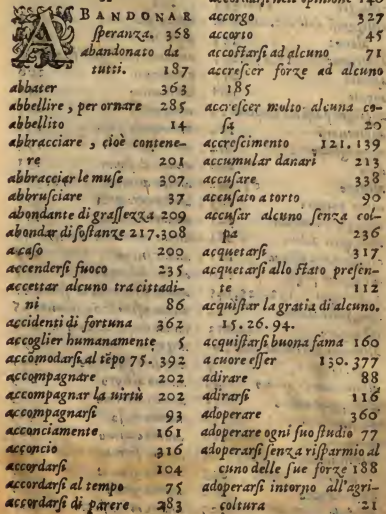 ABANDONAR
speranza. 368
abandonato da
tutti. 187
abbater 363
abbellire, per ornare 285
abbellito 14
abbracciare, cioè contene-
re 201
abbracciar le muse 307
abbrusciare 37
abondante di grassezza 209
abondar di sostanze 217.308
a caso 200
accendersi fuoco 235
accettar alcuno tra cittadi-
ni 86
accidenti di fortuna 362
accoglier humanamente 5
accõmodarsi al tẽpo 75. 392
accompagnare 202
accompagnar la uirtù 202
accompagnarsi 93
acconciamente 161
acconcio 316
accordarsi 104
accordarsi al tempo 75
accordarsi di parere 283
accorgo 327
accorto 45
accostarsi ad alcuno 71
accrescer forze ad alcuno
185
accrescer molto alcuna co-
sa 20
accrescimento 121.139
accumular danari 213
accusare 338
accusato a torto 90
accusar alcuno senza col-
pa 236
acquetarsi 317
acquetarsi allo stato presen-
te 112
acquistar la gratia di alcuno.
15. 26. 94.
acquistarsi buona fama 160
a cuore esser 130. 377
adirare 88
adirarsi 116
adoperare 360
adoperare ogni suo studio 77
adoperarsi senza risparmio al
cuno delle sue forze 188
adoperarsi intorno all'agri-
coltura 21